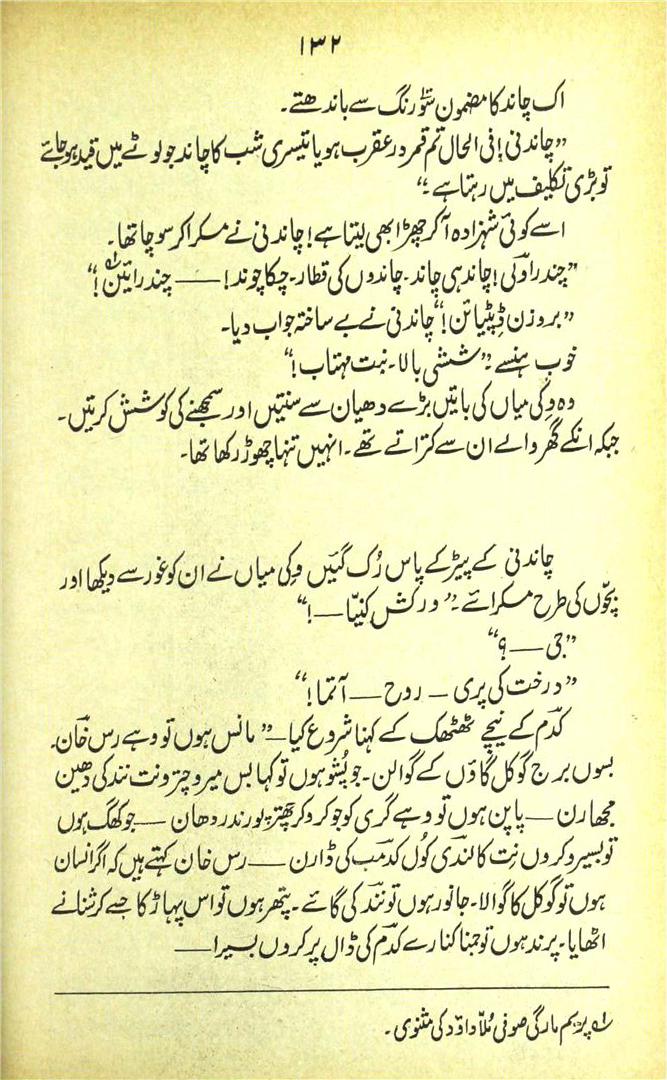 ۱۳۲
اک چاند کا مضمون سَو رنگ سے باندھتے۔
”چاندنی! فی الحال تم قمر در عقرب ہو یا تیسری شب کا چاند جو لوٹے میں قید ہو جائے
تو بڑی تکلیف میں رہتا ہے۔“
اسے کوئی شہزادہ آ کر چھڑا بھی لیتا ہے! چاندنی نے مسکرا کر سوچا تھا۔
”چندراولی! چاند ہی چاند۔ چاندوں کی قطار۔ چکا چوند! —— چندرائین لہ!“
”بروزن ڈپٹیائن!“ چاندنی نے بے ساختہ جواب دیا۔
خوب ہنسے۔ ”ششی بالا۔ بنت مہتاب!“
وہ وکی میاں کی باتیں بڑے دھیان سے سنتیں اور سمجھنے کی کوشش کرتیں۔
جبکہ انکے گھر والے ان سے کتراتے تھے۔ انہیں تنہا چھوڑ رکھا تھا۔
چاندنی کے پیڑ کے پاس رُک گئیں وکی میاں نے ان کو غور سے دیکھا اور
بچّوں کی طرح مسکرائے۔ ”ورکش کنیّا —!“
”جی — ؟“
”درخت کی پری — روح — آتما!“
کدم کے نیچے ٹھٹھک کے کہنا شروع کیا — ”مانس ہوں تو وہے رس خان۔
بسوں برج گوکل گاؤں کے گوالن۔ جو پشو ہوں تو کہا بس میرو چرَونت نند کی دھین
مجھارن — پاہن ہوں تو وہے گری کو جو کرو کر چھتر پورندر دھان — جو کھگ ہوں
تو بسیرو کروں نِت کالندی کول کدمب کی ڈارن — رس خان کہتے ہیں کہ اگر انسان
ہوں تو گوکل کا گوالا۔ جانور ہوں تو نند کی گائے۔ پتھر ہوں تو اس پہاڑ کا جسے کرشنا نے
اٹھایا۔ پرند ہوں تو جمنا کنارے کدم کی ڈال پر کروں بسیرا ——
لہ پریم مارگی صوفی مُلّا داؤد کی مثنوی۔